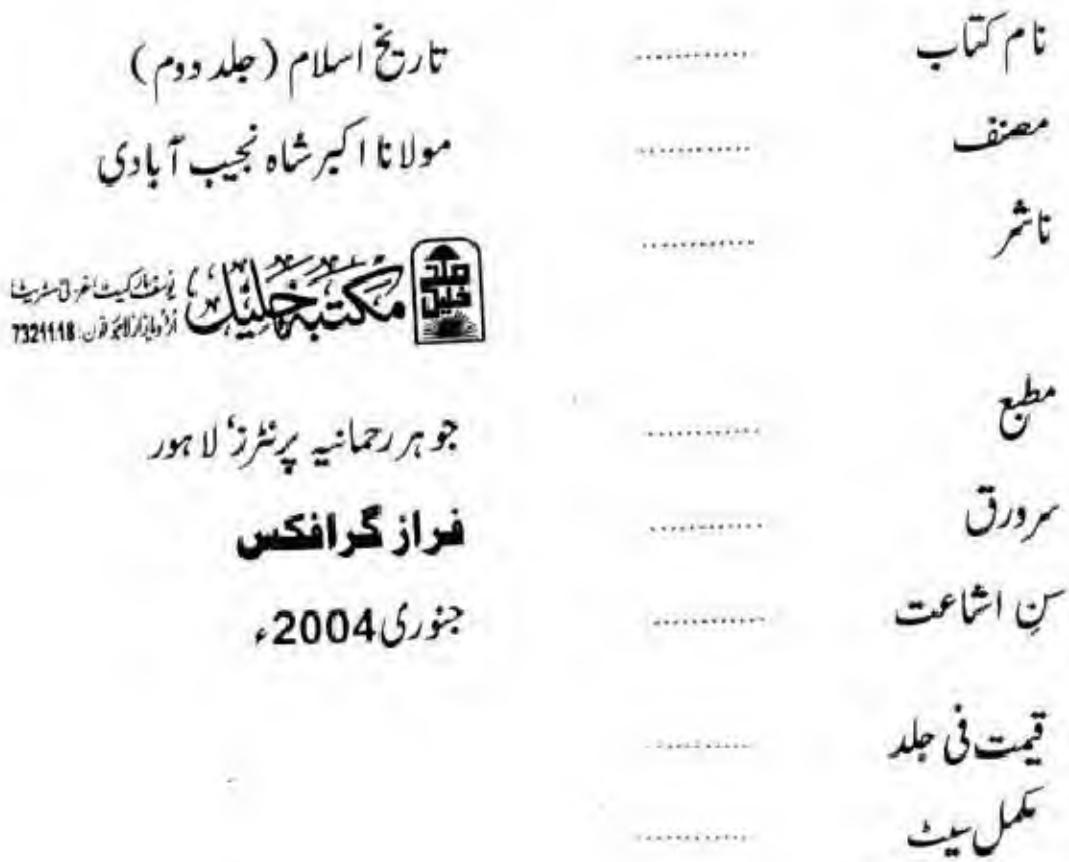 نام کتاب ............ تاریخ اسلام (جلد دوم)
مصنف ............ مولانا اکبر شاہ نجیب آبادی
ناشر ............ مکتبہ خلیل
یوسف مارکیٹ، غزنی سٹریٹ
اُردو بازار لاہور فون: 7321118
مطبع ............ جوہر رحمانیہ پرنٹرز، لاہور
سرورق ............ فراز گرافکس
سنِ اشاعت ............ جنوری 2004ء
قیمت فی جلد ............
مکمل سیٹ ............